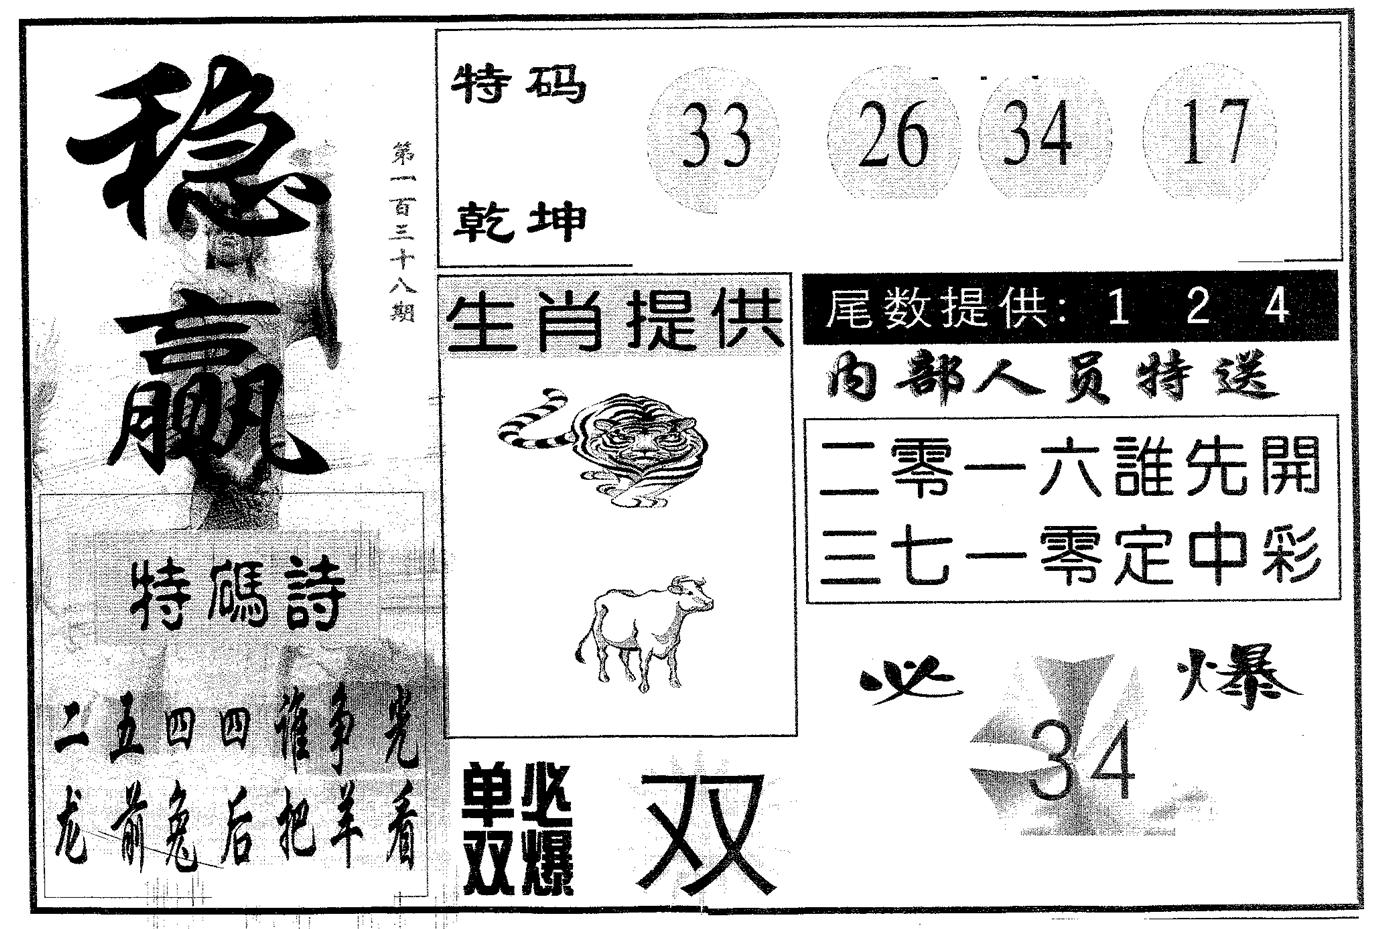 稳赢
第一百三十八期
特码
乾坤
33 26 34 17
生肖提供
尾数提供: 1 2 4
内部人员特送
二零一六誰先開
三七一零定中彩
特碼詩
二五四四谁争光
龙前兔后把羊看
单双必爆
双
必爆
34